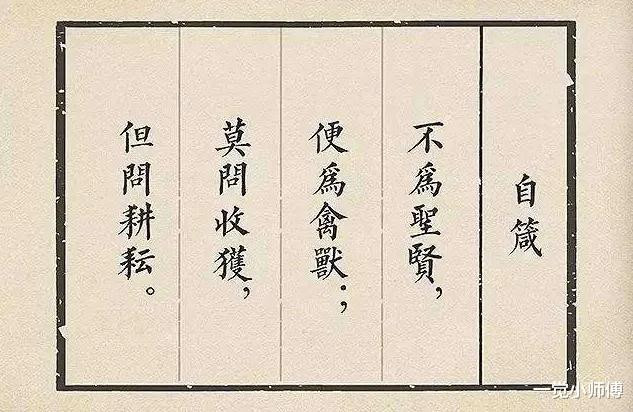 自箴
不為聖賢，
便為禽獸；
莫問收獲，
但問耕耘。
一觉小师傅